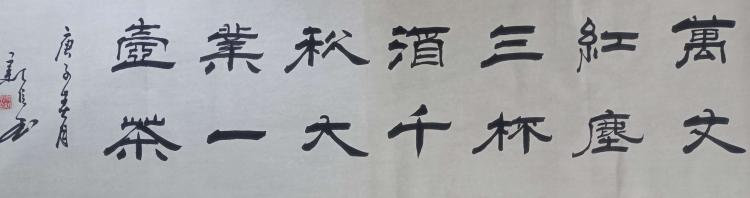 萬丈
紅塵
三杯
酒千
秋大
業一
壺茶
庚子春月